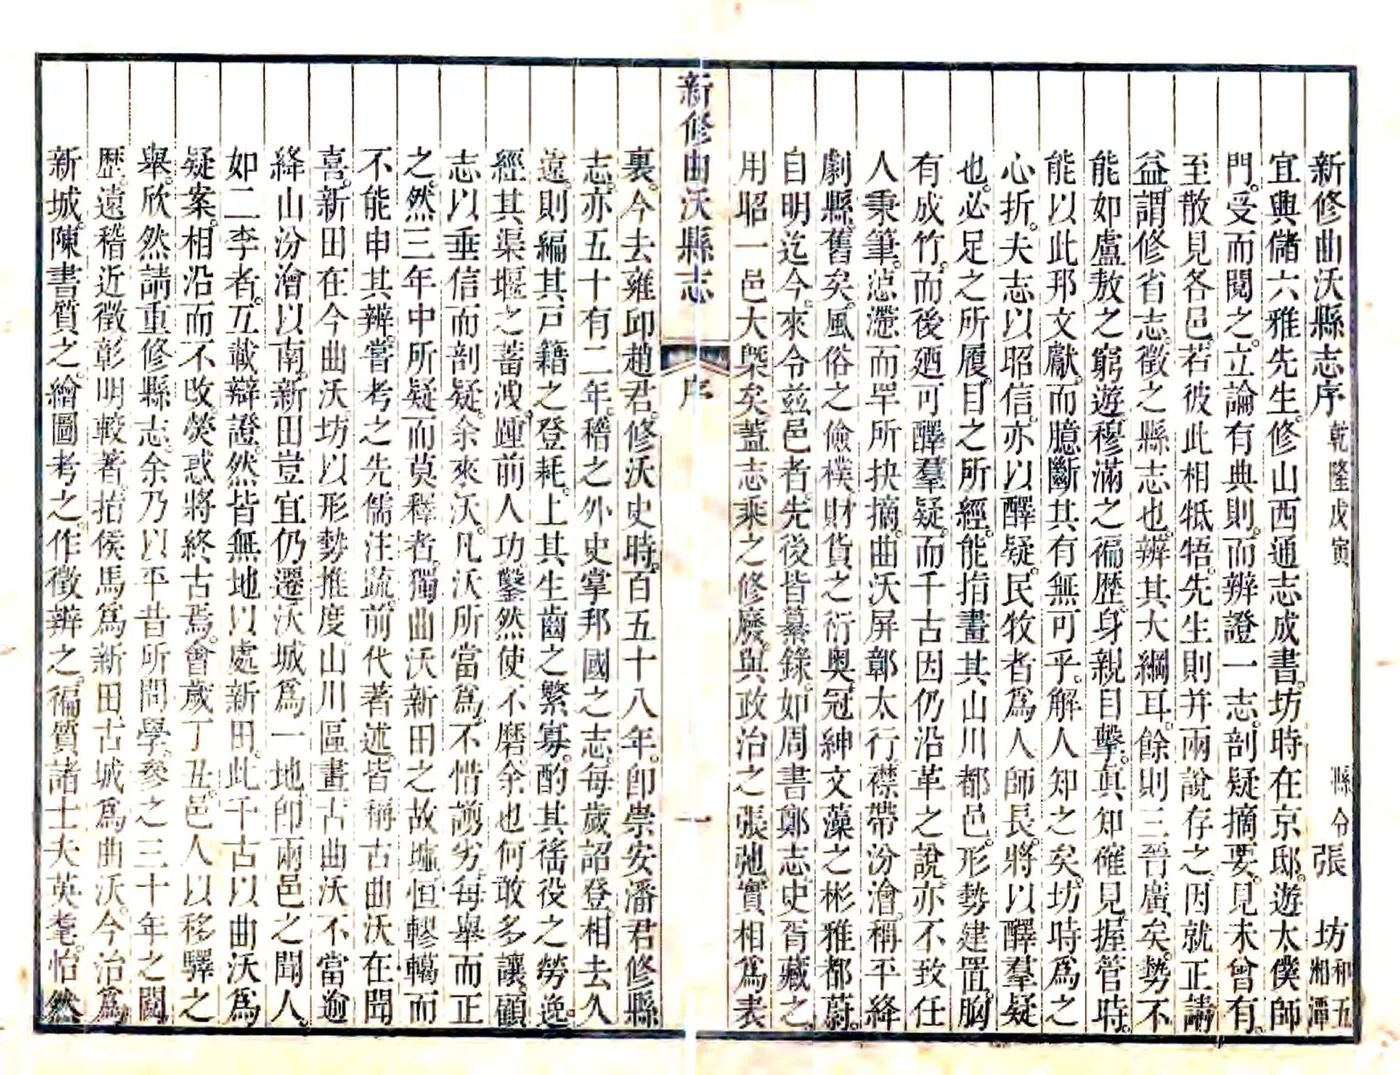 新修曲沃縣志序 乾隆戊寅 縣令張 坊 和五 湘潭
宜興儲六雅先生修山西通志成書坊時在京邸遊太僕師
門受而閱之立論有典則而辨證一志剖疑摘要見未曾有
至散見各邑若彼此相牴牾先生則并兩說存之因就正請
益謂修省志徵之縣志也辨其大綱耳餘則三晉廣矣勢不
能如盧敖之窮遊穆滿之徧歷身親目擊真知確見握管時
能以此邦文獻而臆斷其有無可乎解人知之矣坊時為之
心折夫志以昭信亦以釋疑民牧者為人師長將以釋羣疑
也必足之所履目之所經能指畫其山川都邑形勢建置胸
有成竹而後廼可釋羣疑而千古因仍沿革之說亦不致任
人秉筆惉懘而罕所抉摘曲沃屏鄣太行襟帶汾澮稱平絳
劇縣舊矣風俗之儉樸財貨之衍奧冠紳文藻之彬雅都蔚
自明迄今來令兹邑者先後皆纂錄如周書鄭志史胥藏之
用昭一邑大槩矣蓋志乘之修廢與政治之張弛實相為表
新修曲沃縣志 序 一
裏今去雍邱趙君修沃史時百五十八年卽崇安潘君修縣
志亦五十有二年稽之外史掌邦國之志每歲詔登相去久
遠則編其戸籍之登耗上其生齒之繁寡酌其徭役之勞逸
經其渠堰之蓄洩踵前人功鑿然使不磨余也何敢多讓顧
志以垂信而剖疑余來沃凡沃所當為不惜謭劣每舉而正
之然三年中所疑而莫釋者獨曲沃新田之故墟但轇轕而
不能申其辨嘗考之先儒注疏前代著述皆稱古曲沃在聞
喜新田在今曲沃坊以形勢推度山川區畫古曲沃不當逾
絳山汾澮以南新田豈宜仍遷沃城為一地卽兩邑之聞人
如二李者互載辯證然皆無地以處新田此千古以曲沃為
疑案相沿而不改熒惑將終古焉會歲丁丑邑人以移驛之
舉欣然請重修縣志余乃以平昔所問學參之三十年之閱
歷遠稽近徵彰明較著指侯馬為新田古城為曲沃今治為
新城陳書質之繪圖考之作徵辨之徧質諸士大英耄怡然